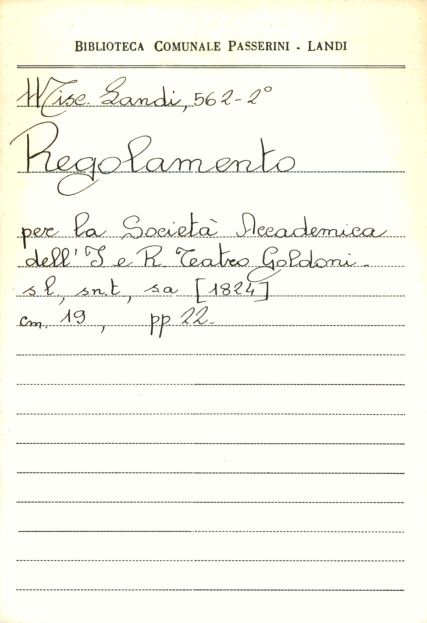 BIBLIOTECA COMUNALE PASSERINI - LANDI
Misc. Landi, 562-2°
Regolamento
per la Società Accademica
dell' I e R Teatro Goldoni.
s l, s.n.t, s a [1824]
cm. 19, pp 22.